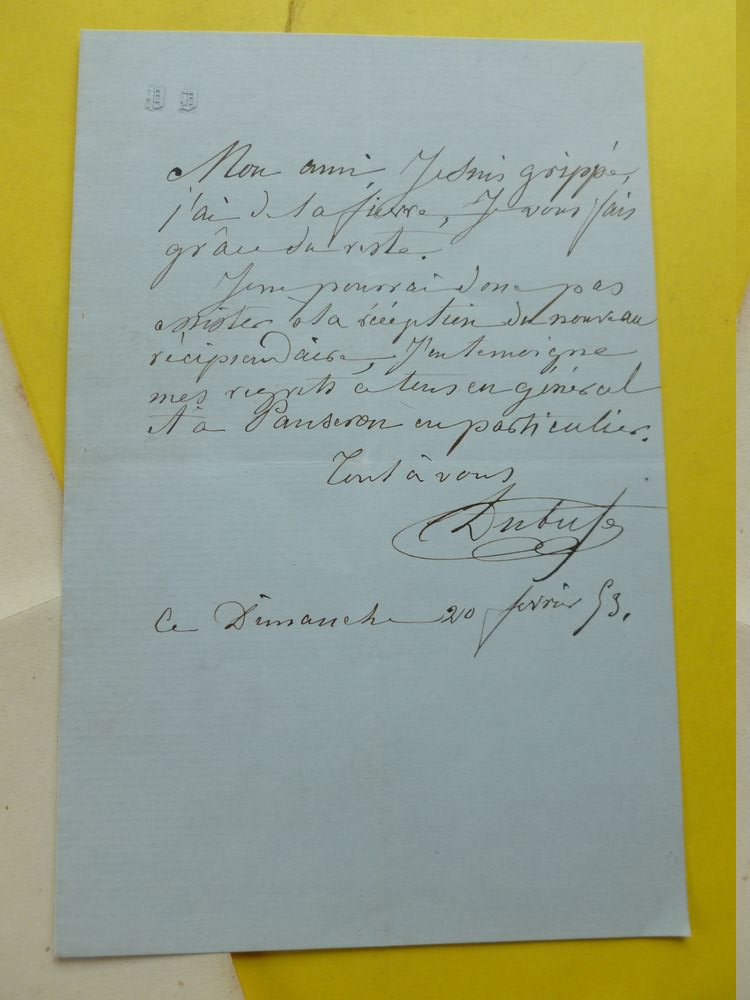 Mon ami, Je suis grippé,
j'ai de la fievre, Je vous fais
grâce du reste.
Je ne pourrai donc pas
assister à la réception du nouveau
récipiendaire, J'en temoigne
mes regrets à tous en général
et à Panseron en particulier.
Tout à vous
Dubufe
Ce Dimanche 20 fevrier 53.